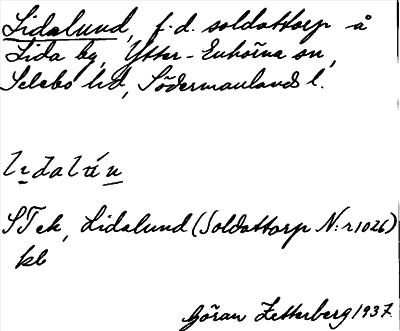 Lidalund, f.d. soldattorp å
Lida by, Ytter-Enhörna sn,
Selebo hd, Södermanlands l.
lidalún
STek, Lidalund (Soldattorp N:r 1026)
kb
Göran Zetterberg 1937.